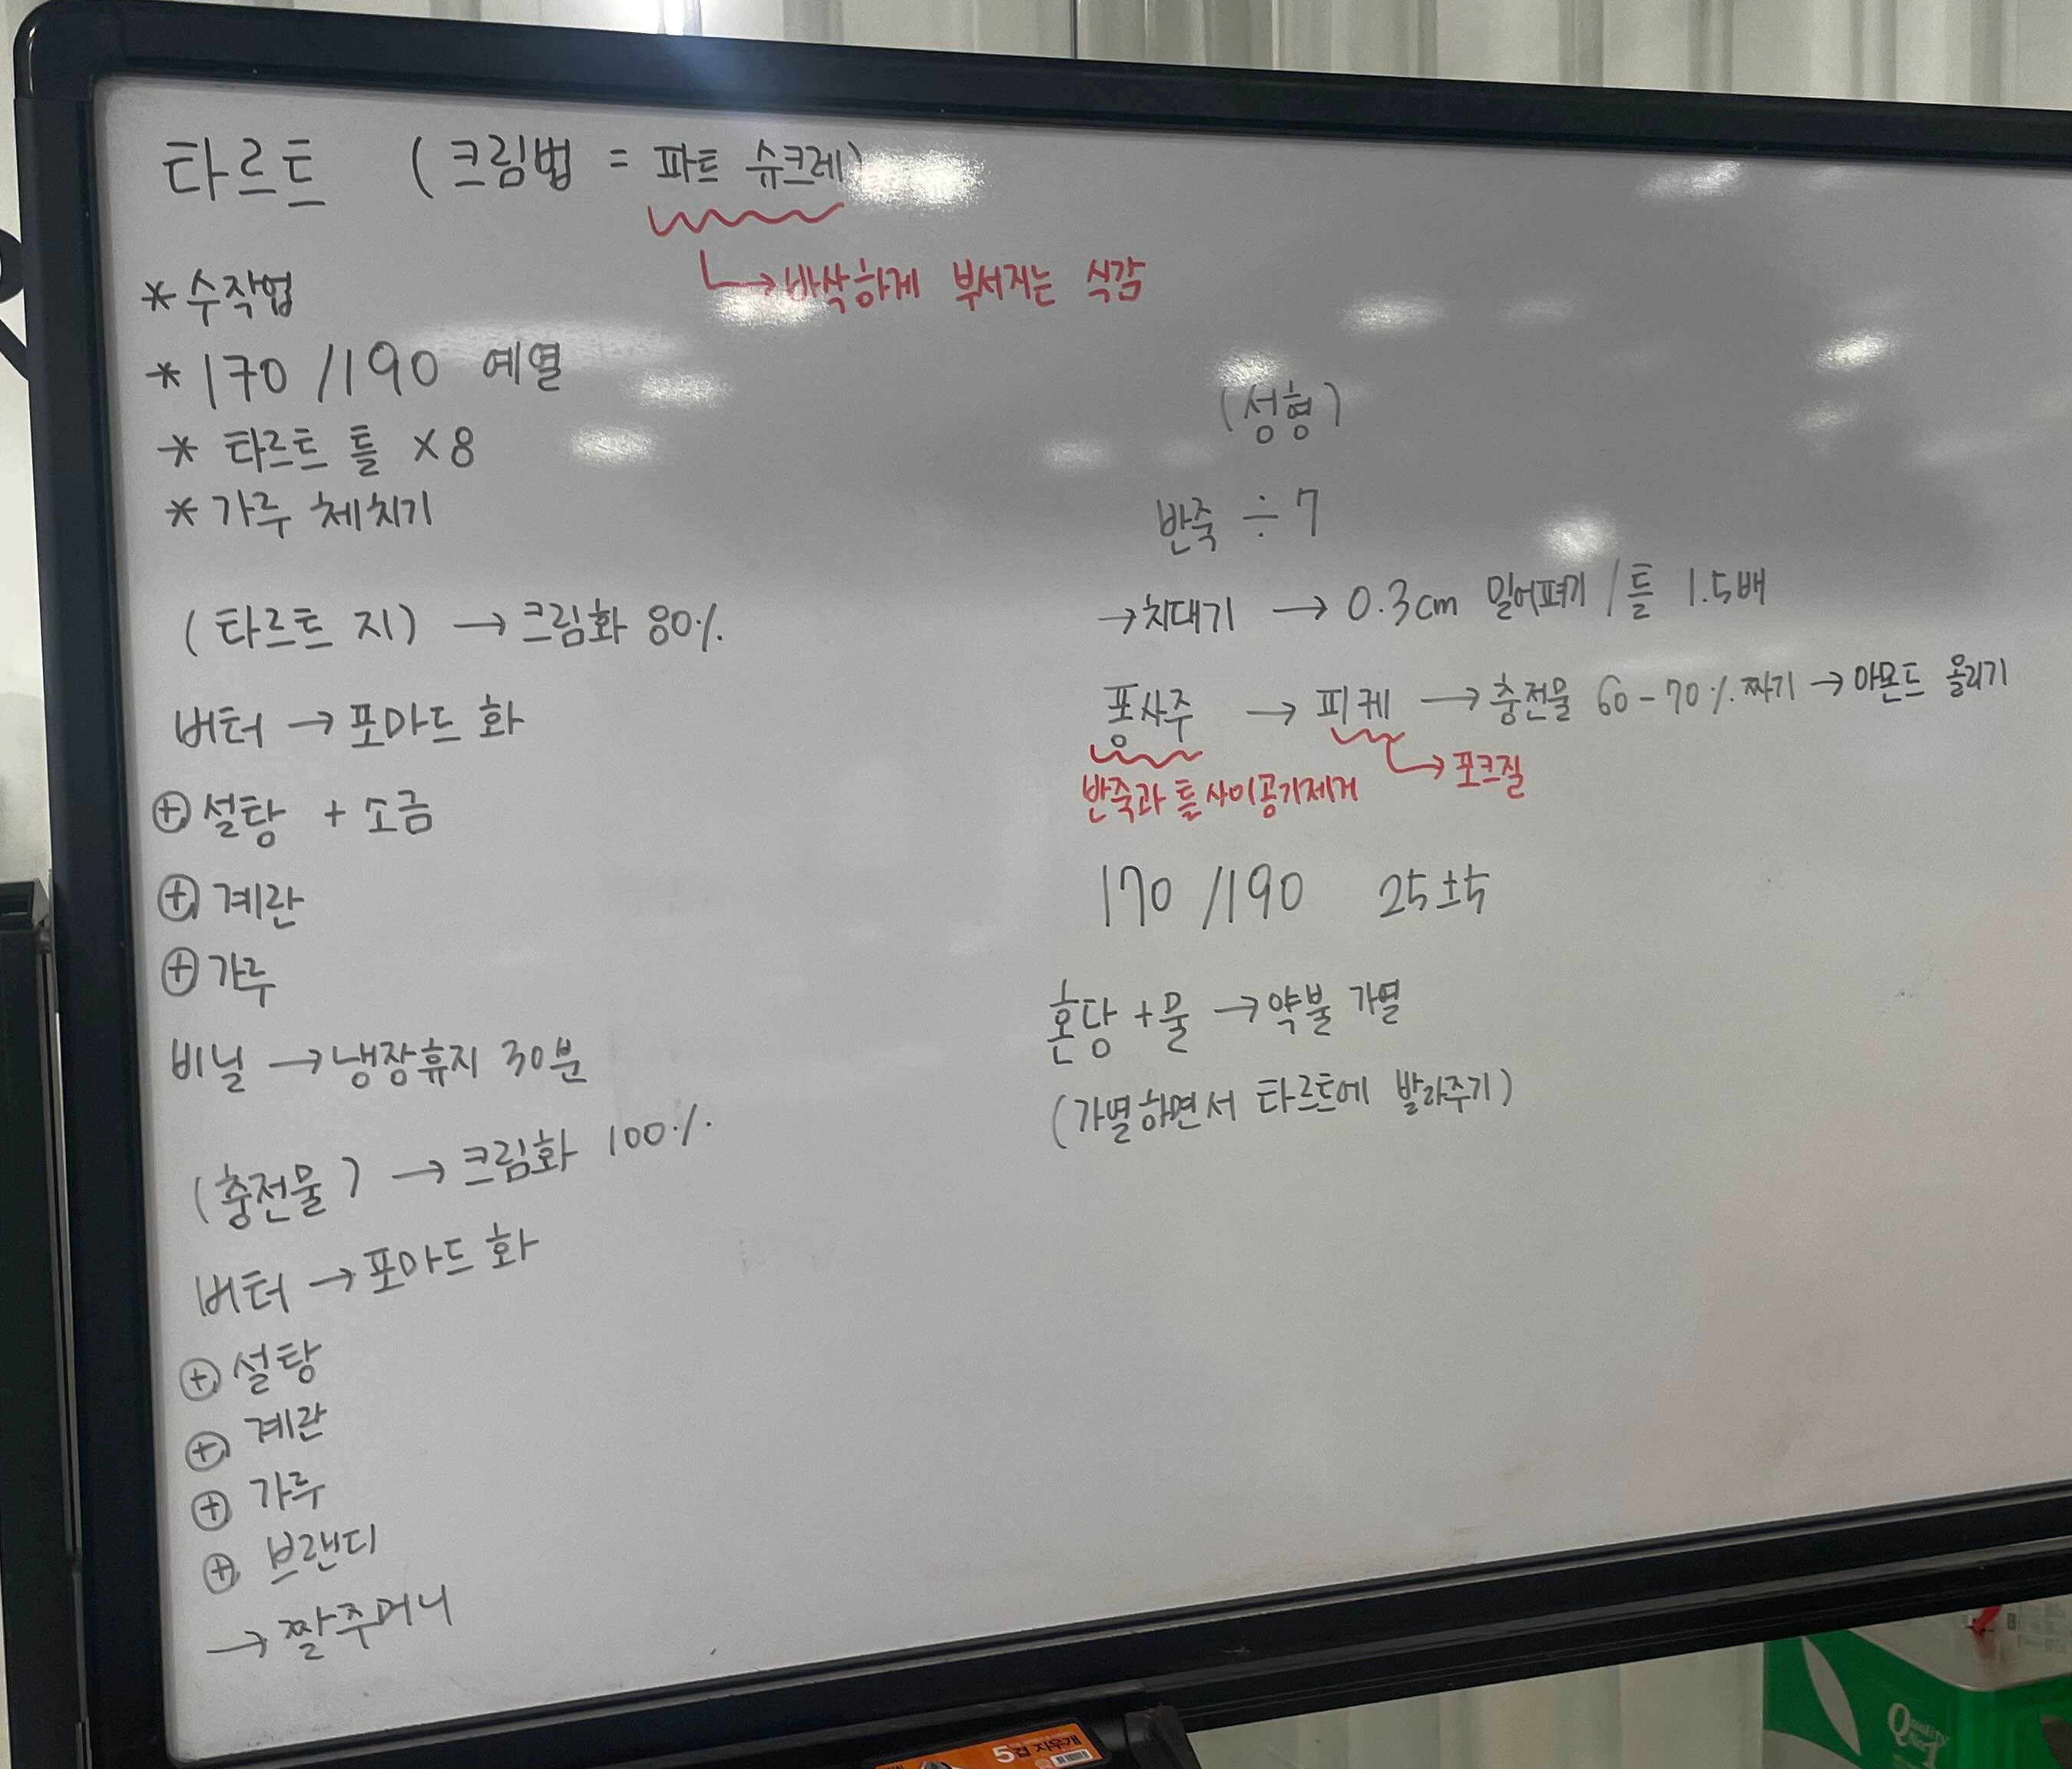 타르트 (크림법 = 파트 슈크레)
→ 바삭하게 부서지는 식감
* 수작업
* 170 / 190 예열
* 타르트 틀 × 8
* 가루 체치기
(타르트 지) → 크림화 80%
버터 → 포마드 화
⊕ 설탕 + 소금
⊕ 계란
⊕ 가루
비닐 → 냉장휴지 30분
(충전물) → 크림화 100%
버터 → 포마드 화
⊕ 설탕
⊕ 계란
⊕ 가루
⊕ 브랜디
→ 짤주머니
(성형)
반죽 ÷ 7
→ 치대기 → 0.3cm 밀어펴기 / 틀 1.5배
퐁사주 → 피케 → 충전물 60-70% 짜기 → 아몬드 올리기
반죽과 틀 사이 공기제거 → 포크질
170 / 190 25±5
혼당 + 물 → 약불 가열
(가열하면서 타르트에 발라주기)
5겹 지우개